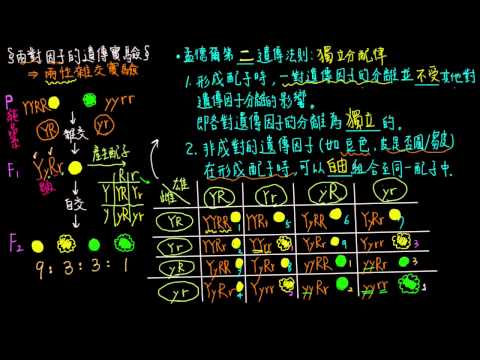 §兩對因子的遺傳實驗§
⇒ 兩性雜交實驗
P YYRR yyrr
純品系
YR yr
雜交
F₁ YyRr
產生配子
R r
Y YR Yr
y yR yr
自交
F₂
9 : 3 : 3 : 1
• 孟德爾第二遺傳法則: 獨立分配律
1. 形成配子時, 一對遺傳因子的分離並不受其他對
遺傳因子分離的影響。
即各對遺傳因子的分離為獨立的。
2. 非成對的遺傳因子 (如豆色、皮是否圓/皺)
在形成配子時, 可以自由組合至同一配子中.
雌 雄 YR Yr yR yr
YR YYRR 1 YYRr 5 YyRR 6 YyRr 7
Yr YYRr 2 YYrr YyRr 9 Yyrr 3
yR YyRR YyRr 8 yyRR 1 yyRr 3
yr YyRr 4 Yyrr yyRr 2 yyrr 1